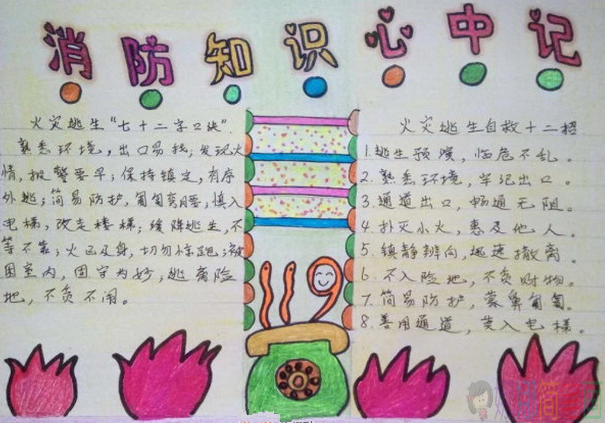 消防知识心中记
火灾逃生"七十二字口诀".
熟悉环境，出口易找；发现火
情，报警要早；保持镇定，有序
外逃；简易防护，匍匐弯腰；慎入
电梯，改走楼梯；缓降逃生，不
等不靠；火已及身，切勿惊跑；被
困室内，固守为妙；逃离险
地，不贪不闹。
119
火灾逃生自救十二招
1.逃生预演，临危不乱。
2.熟悉环境，牢记出口。
3.通道出口，畅通无阻。
4.扑灭小火，惠及他人。
5.镇静辨向，迅速撤离。
6.不入险地，不贪财物。
7.简易防护，蒙鼻匍匐。
8.善用通道，莫入电梯。
简